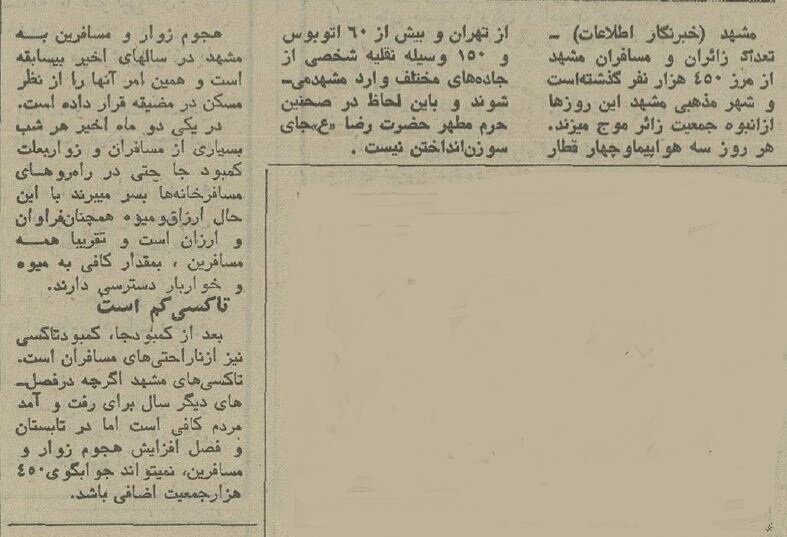 مشهد (خبرنگار اطلاعات) ـ
تعداد زائران و مسافران مشهد
از مرز ٤٥٠ هزار نفر گذشته‌است
و شهر مذهبی مشهد این روزها
ازانبوه جمعیت زائر موج میزند.
هر روز سه هواپیماوچهار قطار
از تهران و بیش از ٦٠ اتوبوس
و ١٥٠ وسیله نقلیه شخصی از
جاده‌های مختلف وارد مشهدمی‌ـ
شوند و باین لحاظ در صحنین
حرم مطهر حضرت رضا «ع»جای
سوزن‌انداختن نیست .
هجوم زوار و مسافرین بـه
مشهد در سالهای اخیر بیسابقه
است و همین امر آنها را از نظر
مسکن در مضیقه قرار داده است.
در یکی دو ماه اخیر هر شب
بسیاری از مسافران و زواربعلت
کمبود جا حتی در راهروهای
مسافرخانه‌ها بسر میبرند با این
حال ارزاق‌ومیوه همچنان‌فراوان
و ارزان است و تقریبا همـه
مسافرین ، بمقدار کافی به میوه
و خواربار دسترسی دارند.
تاکسی‌کم است
بعد از کمبودجا، کمبودتاکسی
نیز ازناراحتی‌های مسافران است.
تاکسی‌های مشهد اگرچه درفصل‌ـ
های دیگر سال برای رفت و آمد
مردم کافی است اما در تابستان
و فصل افزایش هجوم زوار و
مسافرین، نمیتواند جوابگوی ٤٥٠
هزارجمعیت اضافی باشد.